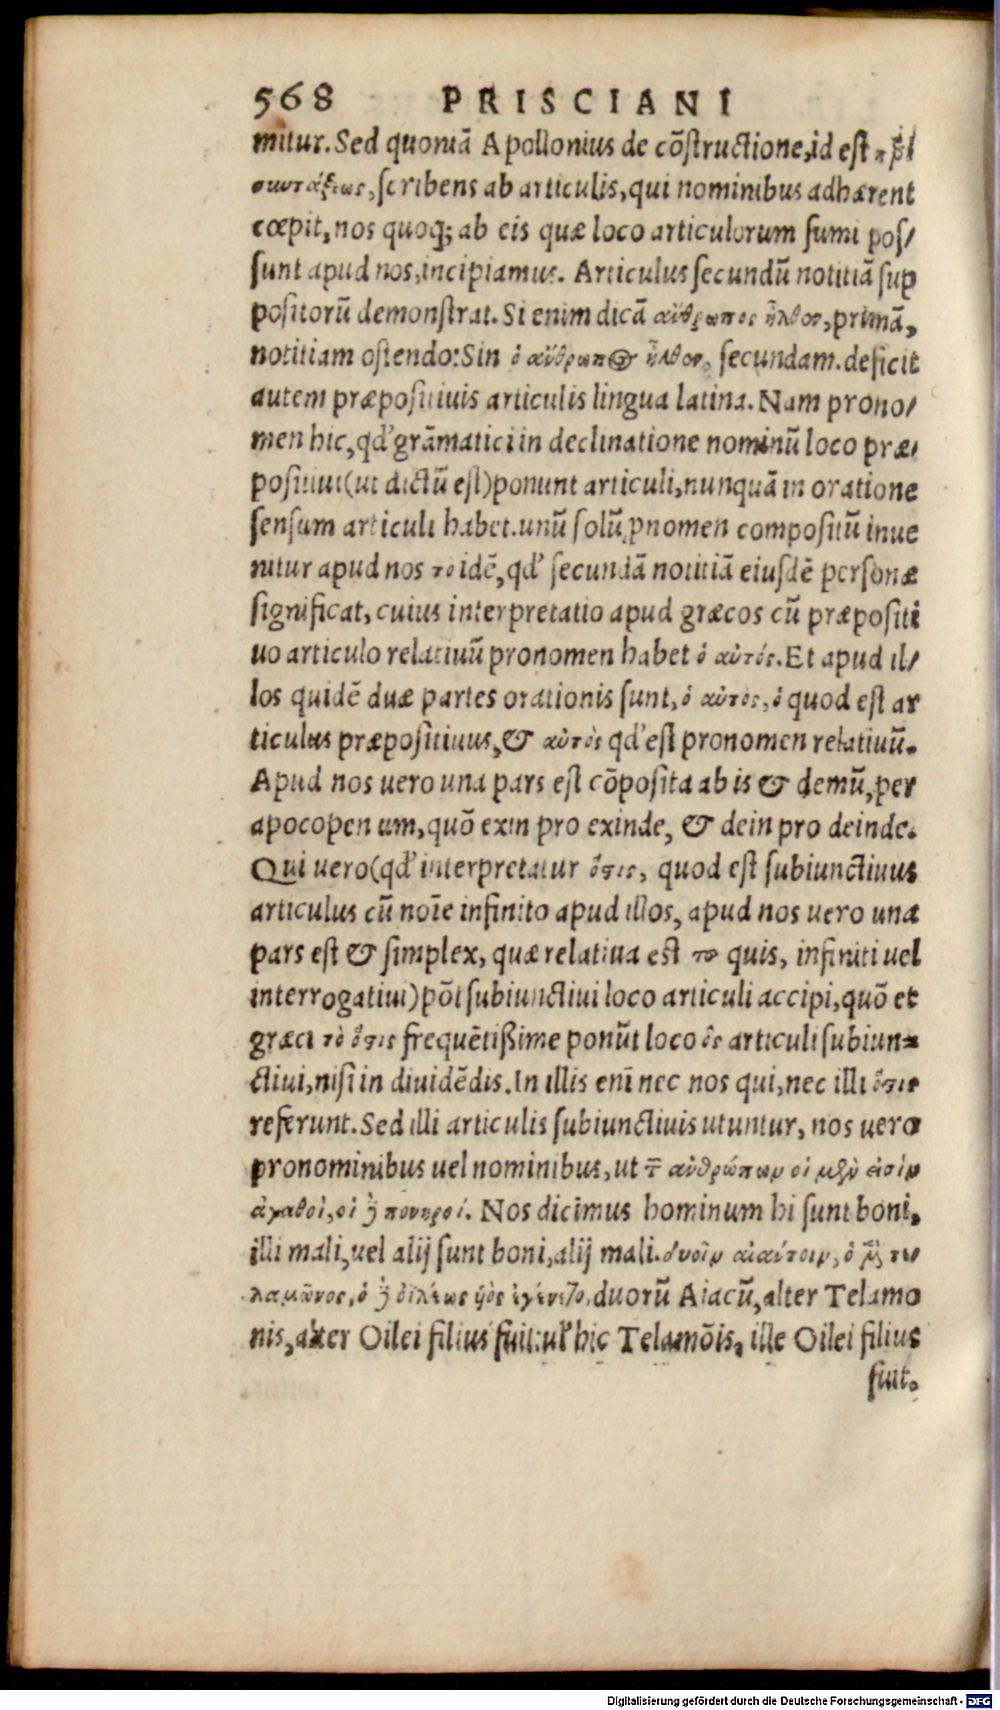 568 PRISCIANI
mitur. Sed quoniā Apollonius de cōstructione, id est περὶ
συντάξεως, scribens ab articulis, qui nominibus adhærent
cœpit, nos quoq; ab eis quæ loco articulorum sumi pos/
sunt apud nos, incipiamus. Articulus secundū notitiā sup
positorū demonstrat. Si enim dicā ἄνθρωπος ἦλθον, primā,
notitiam ostendo: Sin ὁ ἄνθρωπος ἦλθον, secundam. deficit
autem præpositiuis articulis lingua latina. Nam prono/
men hic, qđ grāmatici in declinatione nominū loco præ/
positiui (ut dictū est) ponunt articuli, nunquā in oratione
sensum articuli habet. unū solū pnomen compositū inue
nitur apud nos το idē, qđ secundā notitiā eiusdē personæ
significat, cuius interpretatio apud græcos cū præpositi
uo articulo relatiuū pronomen habet ὁ αὐτός. Et apud il/
los quidē duæ partes orationis sunt, ὁ αὐτος, ὁ quod est ar
ticulus præpositiuus, & αὐτὸς qđ est pronomen relatiuū.
Apud nos uero una pars est cōposita ab is & demū, per
apocopen um, quō exin pro exinde, & dein pro deinde.
Qui uero (qđ interpretatur ὅςις, quod est subiunctiuus
articulus cū noīe infinito apud illos, apud nos uero una
pars est & simplex, quæ relatiua est τῳ quis, infiniti uel
interrogatiui) pōt subiunctiui loco articuli accipi, quō et
græci τὸ ὅςις frequētißime ponūt loco ὃς articuli subiun-
ctiui, nisi in diuidēdis. In illis enī nec nos qui, nec illi ὅςις
referunt. Sed illi articulis subiunctiuis utuntur, nos uero
pronominibus uel nominibus, ut τῶν ἀνθρώπων οἱ μὲν εἰσὶν
ἀγαθοὶ, οἱ δὲ πονηροί. Nos dicimus hominum hi sunt boni,
illi mali, uel alij sunt boni, alij mali. δυοῖν αἰαύτοιν, ὁ μὲν τε/
λαμῶνος, ὁ δὲ ὀϊλέως υἱὸς ἐγένετο, duorū Aiacū, alter Telamo
nis, alter Oilei filius fuit: uł hic Telamōis, ille Oilei filius
fuit.
Digitalisierung gefördert durch die Deutsche Forschungsgemeinschaft - DFG